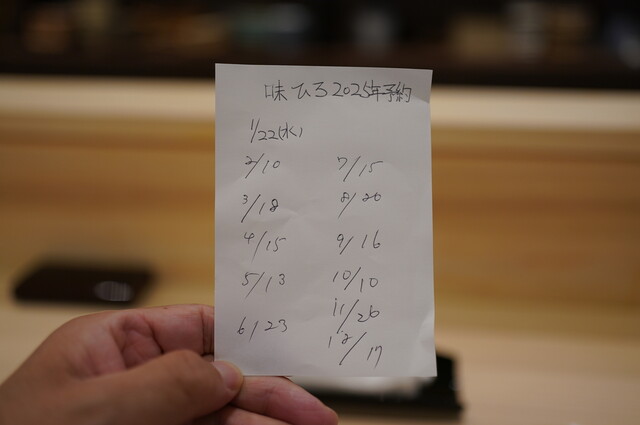 味ひろ2025年予約
1/22(水)
2/10
3/18
4/15
5/13
6/23
7/15
8/20
9/16
10/10
11/26
12/17